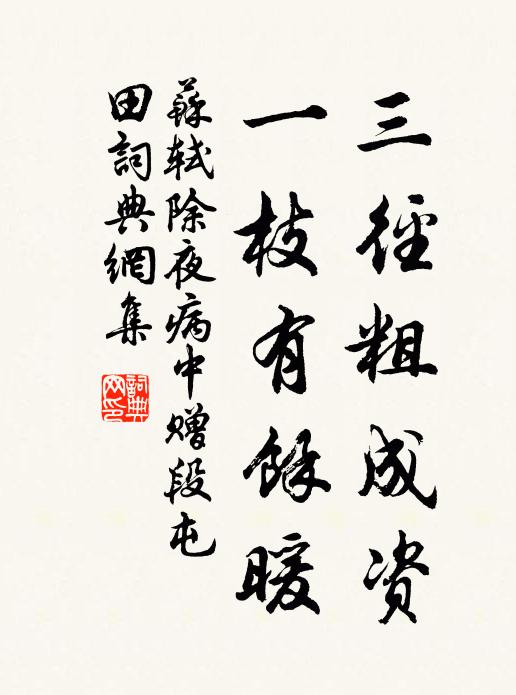 三徑粗成资
一枝有餘暖
蘇軾除夜病中赠段屯
田詞典網集
詞典
网印